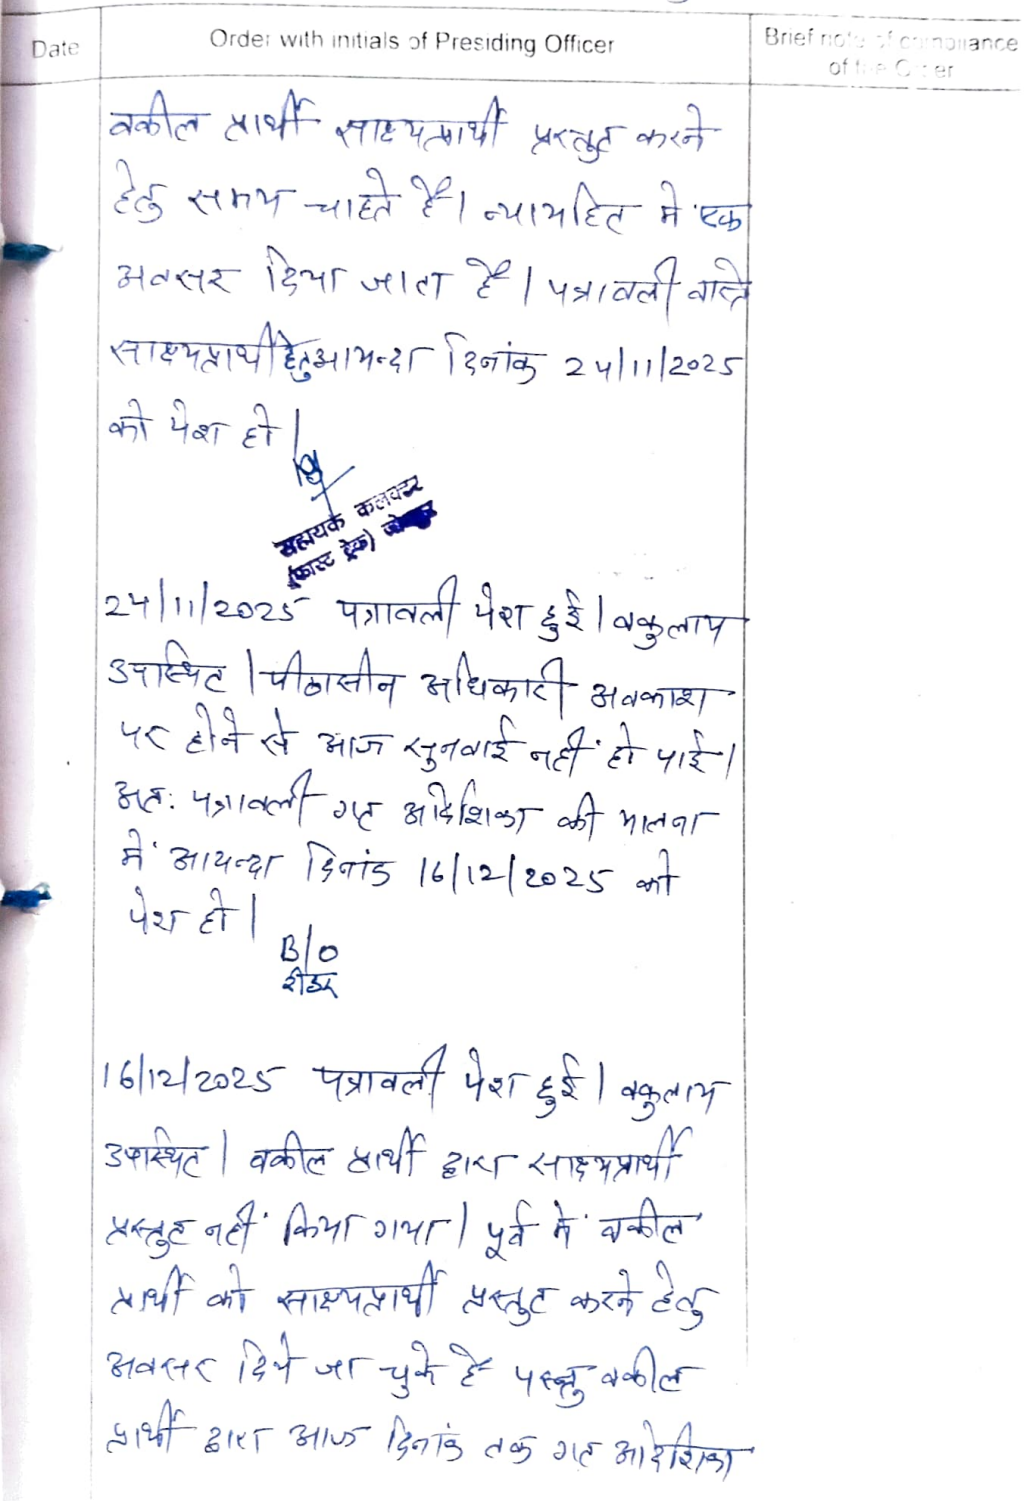 Date
Order with initials of Presiding Officer
Brief note of compliance
of the Order
वकील प्रार्थी साक्ष्यप्रार्थी प्रस्तुत करने
हेतु समय चाहते हैं। न्यायहित में एक
अवसर दिया जाता है। पत्रावली वास्ते
साक्ष्यप्रार्थी हेतु आयन्दा दिनांक 24/11/2025
को पेश हो।
सहायक कलक्टर
(फास्ट ट्रेक)
24/11/2025 पत्रावली पेश हुई। वकुलाय
उपस्थित। पीठासीन अधिकारी अवकाश
पर होने से आज सुनवाई नहीं हो पाई।
अतः पत्रावली गत आदेशिका की पालना
में आयन्दा दिनांक 16/12/2025 को
पेश हो।
B/o
रीडर
16/12/2025 पत्रावली पेश हुई। वकुलाय
उपस्थित। वकील प्रार्थी द्वारा साक्ष्यप्रार्थी
प्रस्तुत नहीं किया गया। पूर्व में वकील
प्रार्थी को साक्ष्यप्रार्थी प्रस्तुत करने हेतु
अवसर दिये जा चुके हैं परन्तु वकील
प्रार्थी द्वारा आज दिनांक तक गत आदेशिका